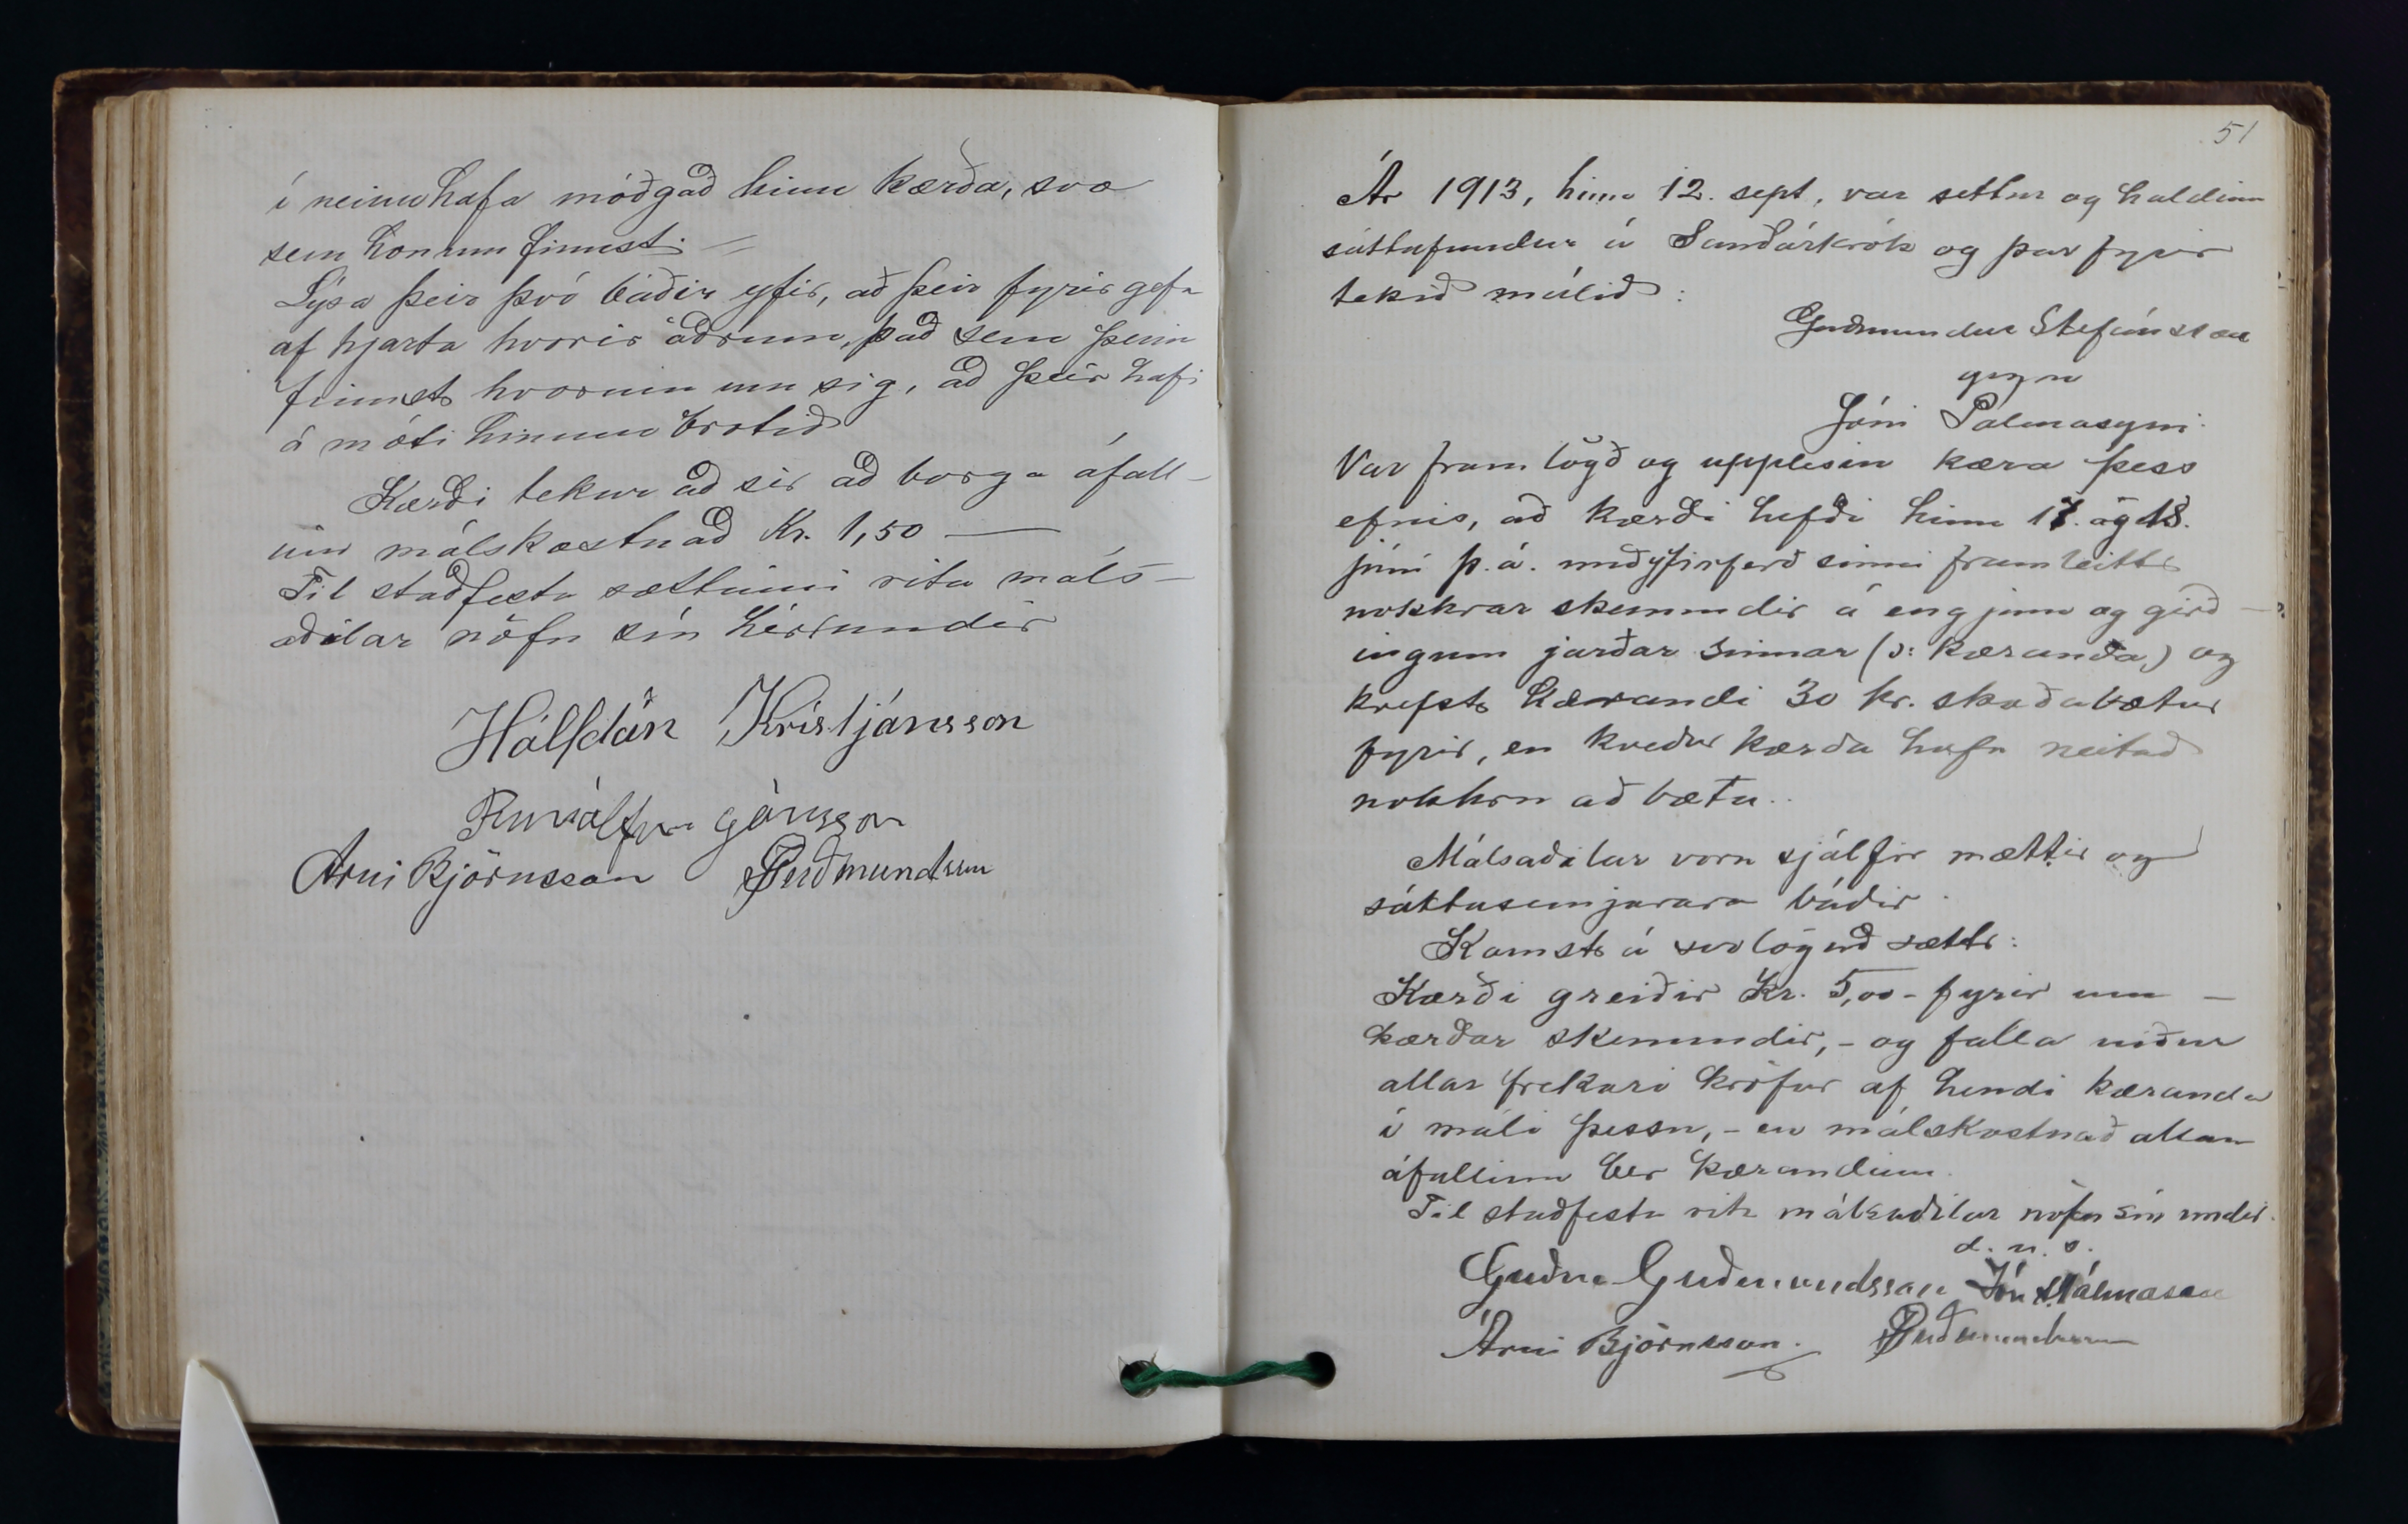 í neinu hafa móðgað hinn kærða, svo
sem honum finnst. =
Lýsa þeir því báðir yfir, að þeir fyrirgefa
af hjarta hvorir öðrum, það sem þeim
finnst hvorum um sig, að þeir hafi
á móti hinum brotið
Kærði tekur að sér að borga áfall-
inn málskostnað Kr. 1,50 —
Til staðfestu sættinni rita máls-
aðilar nöfn sín hér undir
Hálfdán Kristjánsson
Runólfur Jónsson
Árni Björnsson PGuðmundsson
51
Ár 1913, hinn 12. sept., var settur og haldinn
sáttafundur á Sauðárkrók og þar fyrir
tekið málið:
Guðmundur Stefánsson
gegn
Jóni Pálmasyni.
Var framlögð og upplesin kæra þess
efnis, að kærði hefði hinn 17. og 18.
júní þ.á. með yfirferð sinni framleitt
nokkrar skemmdir á engjum og girð-
ingum jarðar sinnar (ɔ: kæranda) og
krefst kærandi 30 kr. skaðabætur
fyrir, en kveður kærða hafa neitað
nokkru að bæta.
Málsaðilar voru sjálfir mættir og
sáttasemjarar báðir.
Komst á svolöguð sætt:
Kærði greiðir Kr. 5,00 - fyrir um-
kærðar skemmdir, - og falla niður
allar frekari kröfur af hendi kæranda
í máli þessu, - en málskostnað allan
áfallinn ber kærandinn.
Til staðfestu rita málsaðilar nöfn sín undir.
d. u. s.
Guðm. Guðmundsson Jón Pálmason
Árni Björnsson. PGuðmundsson